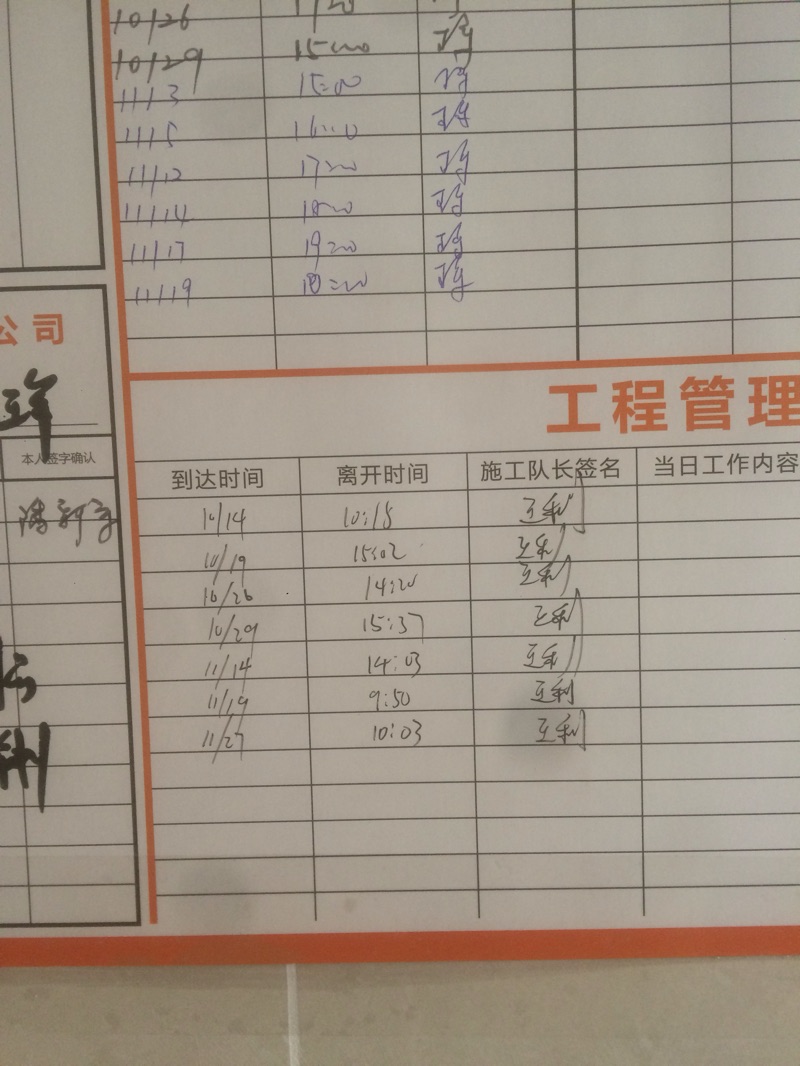 10/26
10/29 15:00
11/3 15:00
11/5 16:00
11/12 17:20
11/14
11/17 19:20
11/19
公司
本人签字确认
工程管理
到达时间 离开时间 施工队长签名 当日工作内容
10/14 10:18 王利
10/19 15:02 王利
10/26 14:20 王利
10/29 15:37 王利
11/14 14:03 王利
11/19 9:50 王利
11/27 10:03 王利